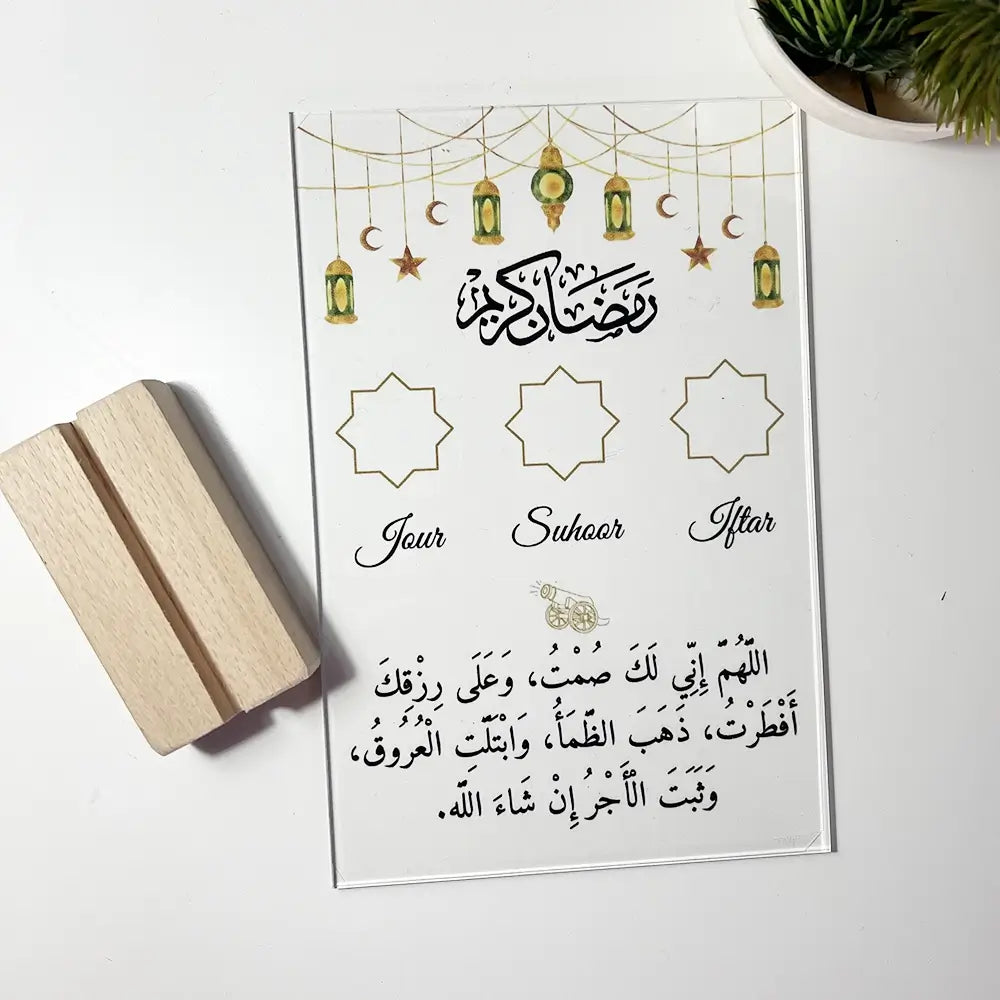 رَمَضَان كَرِيْم
Jour Suhoor Iftar
اللَّهُمَّ إِنِّي لَكَ صُمْتُ، وَعَلَى رِزْقِكَ
أَفْطَرْتُ، ذَهَبَ الظَّمَأُ، وَابْتَلَّتِ الْعُرُوقُ،
وَثَبَتَ الْأَجْرُ إِنْ شَاءَ اللَّه.